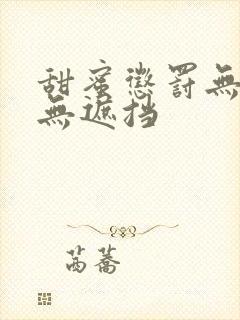 甜蜜懲罰無
無遮挡
茵蕎